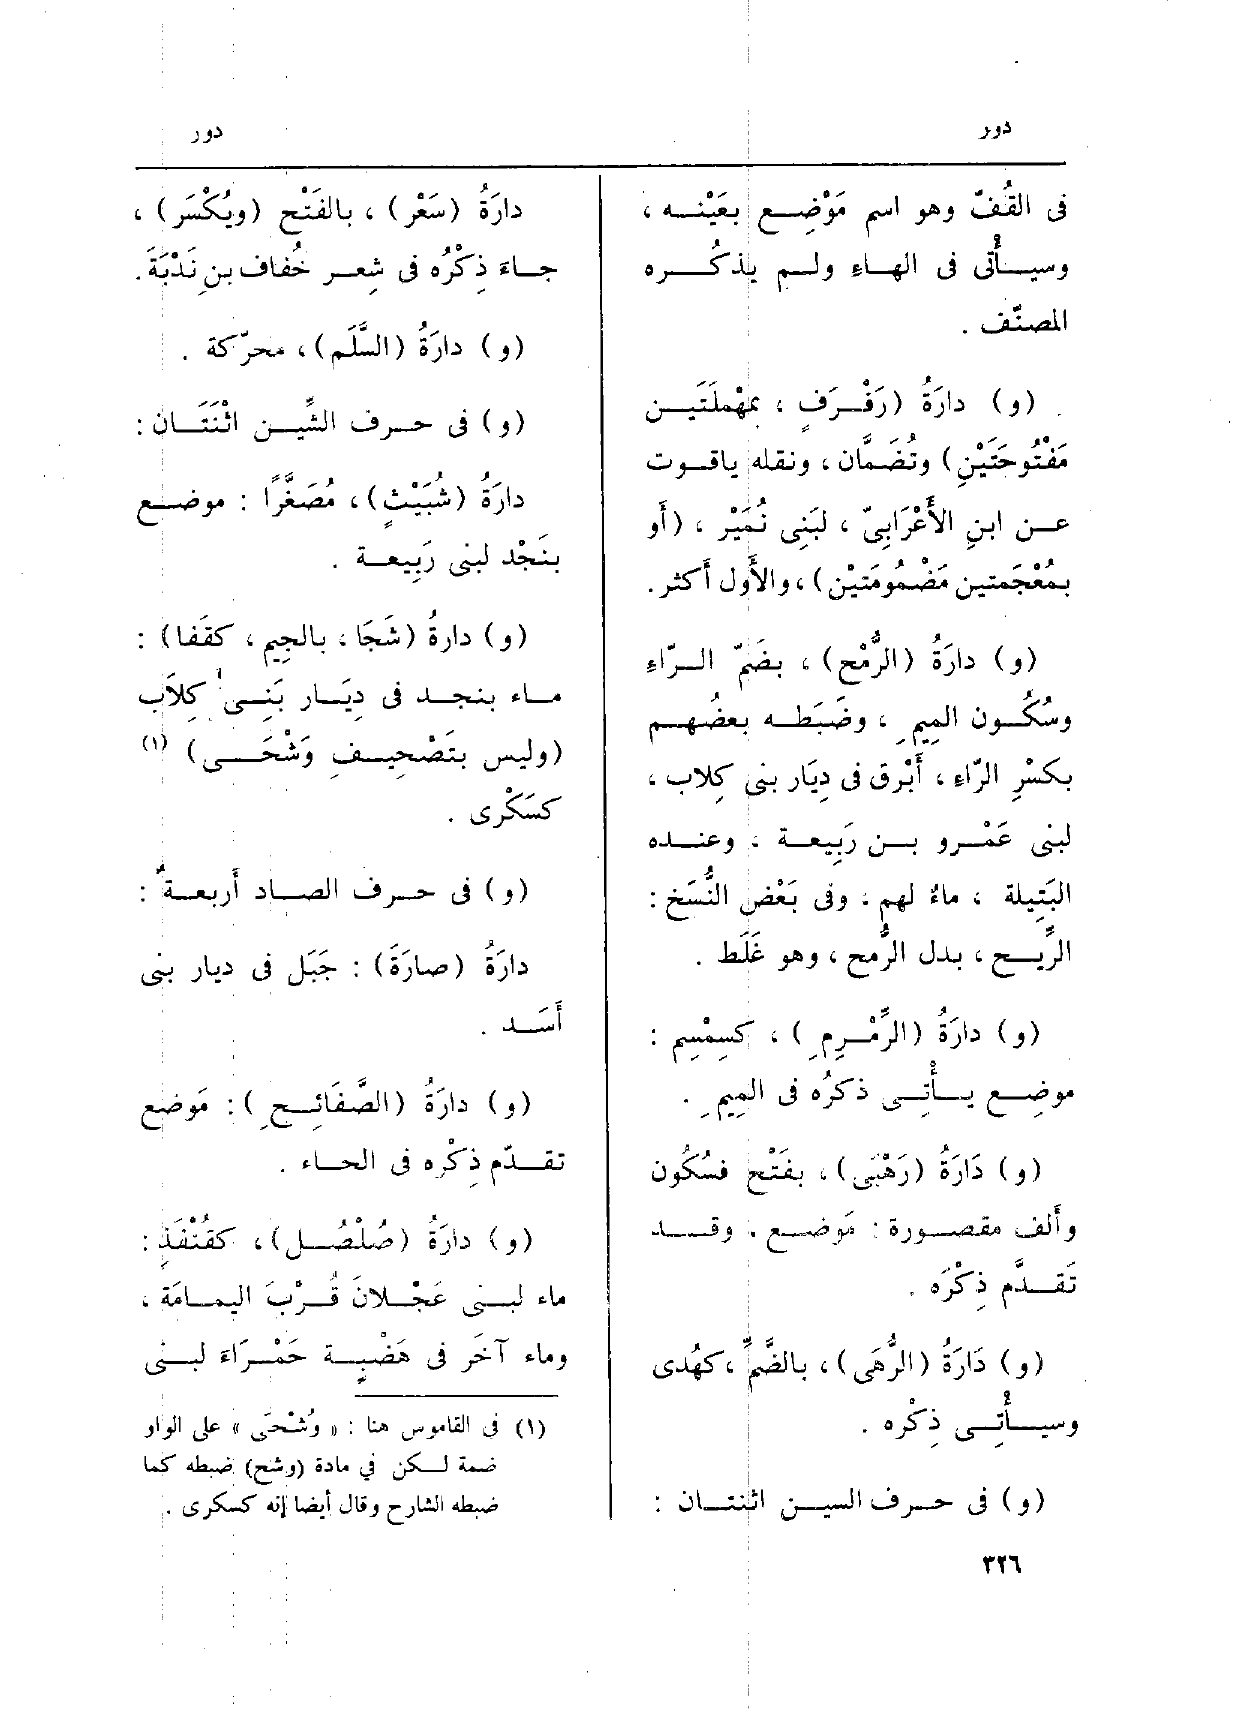 دور
دور
فى القُفّ وهو اسم مَوْضِع بعَيْنه ،
وسيأْتى فى الهاءِ ولم يذكُره
المصنّف .
(و) دارَةُ (رَفْرَفٍ ، بمُهْمَلَتَين
مَفْتُوحَتَيْنِ) وتُضَمَّان ، ونقله ياقوت
عن ابنِ الأَعْرَابِيّ ، لبَنِى نُمَيْر ، (أَو
بمُعْجَمَتين مَضْمُومَتَيْن) ، والأَول أَكثر.
(و) دارَةُ (الرُّمْح) ، بضَمّ الرّاءِ
وسُكُون المِيمِ ، وضَبَطه بعضُهم
بكسْرِ الرّاءِ ، أَبْرق فى دِيَار بنى كِلاب ،
لبنى عَمْرو بن رَبِيعة ، وعنده
البَتِيلة ، ماءٌ لهم ، وفى بَعْض النُّسَخ :
الرِّيح ، بدل الرُّمح ، وهو غَلَط .
(و) دارَةُ (الرِّمْرِمِ) ، كسِمْسِم :
موضِع يأْتى ذكرُه فى المِيمِ .
(و) دَارَةُ (رَهْبَى) ، بفَتْح فسُكُون
وأَلف مقصورة : مَوضع ، وقد
تَقدَّم ذِكْرُه .
(و) دَارَةُ (الرُّهَى) ، بالضَّمِّ ، كهُدى
وسيأْتِى ذِكْره .
(و) فى حرف السين اثنتان :
دارَةُ (سَعْر) ، بالفَتْح (ويُكْسَر) ،
جاءَ ذِكْرُه فى شِعر خُفاف بن نَدْبَة.
(و) دارَةُ (السَّلَم) ، محرّكة .
(و) فى حرف الشِّين اثْنَتَان :
دارَةُ (شُبَيْثٍ) ، مُصَغَّرًا : موضع
بنَجْد لبنى رَبِيعة .
(و) دارةُ (شَجَا ، بالجِيم ، كقَفا) :
ماء بنجد فى دِيَار بَنِى كِلاَب
(وليس بتَصْحِيفِ وَشْحَى) (١)
كسَكْرى .
(و) فى حرف الصاد أَربعةٌ :
دارَةُ (صارَةَ) : جَبَل فى ديار بنى
أَسَد .
(و) دارَةُ (الصَّفَائِحِ) : مَوضع
تقدّم ذِكْره فى الحاء .
(و) دارَةُ (صُلْصُل) ، كقُنْفُذٍ :
ماء لبنى عَجْلانَ قُرْبَ اليمامَة ،
وماء آخَر فى هَضْبةٍ حَمْرَاءَ لبنى
(١) فى القاموس هنا : « وُشْحَى » على الواو
ضمة لكن في مادة (وشح) ضبطه كما
ضبطه الشارح وقال أيضا إنه كسكرى .
٣٢٦